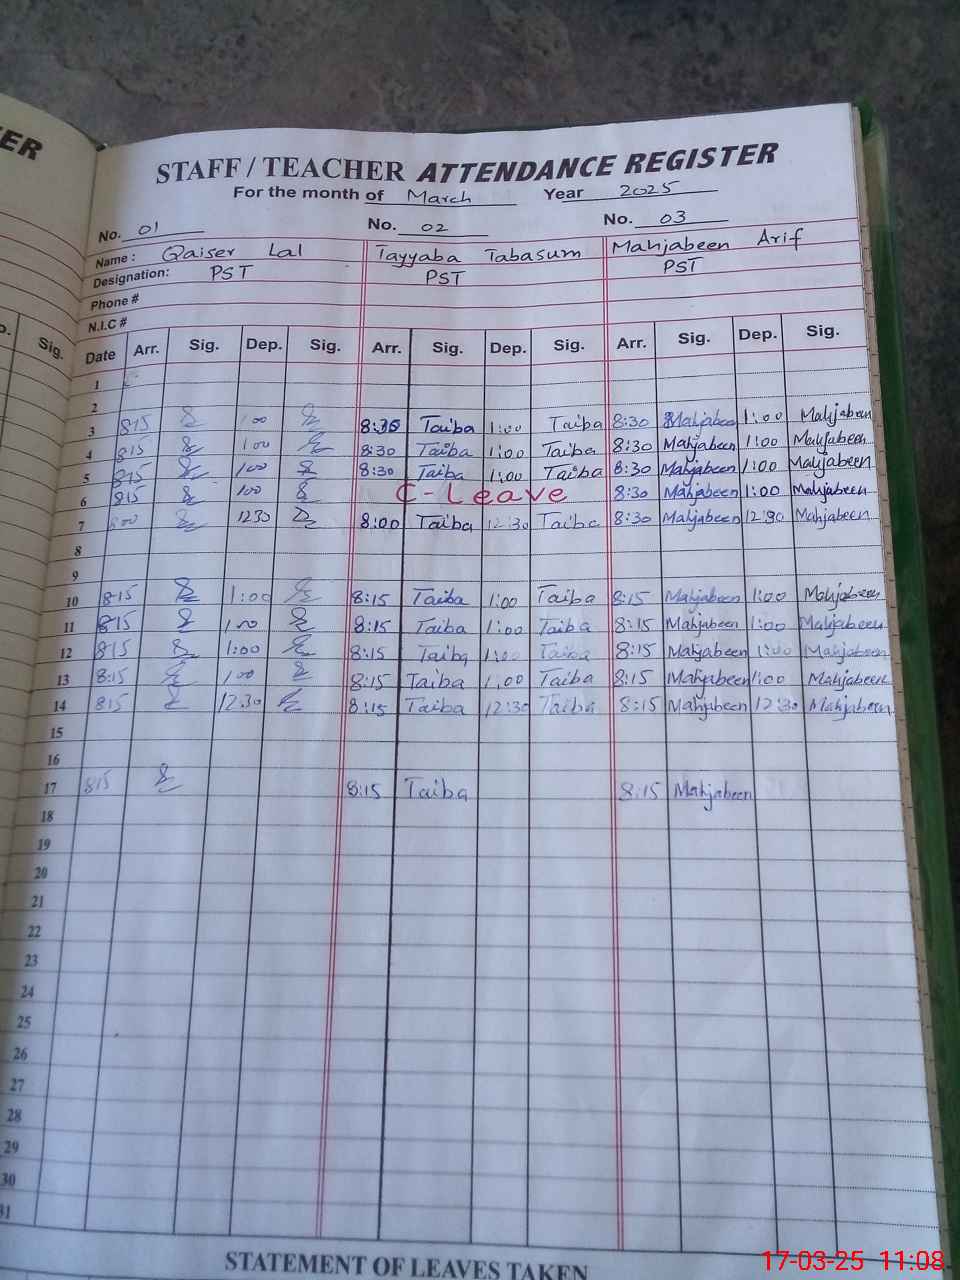 ER
STAFF / TEACHER ATTENDANCE REGISTER
For the month of March Year 2025
No. 01 No. 02 No. 03
Name : Qaiser Lal Tayyaba Tabasum Mahjabeen Arif
Designation: PST PST PST
Phone #
N.I.C #
Sig. Date Arr. Sig. Dep. Sig. Arr. Sig. Dep. Sig. Arr. Sig. Dep. Sig.
1
2
3 815 100 8:35 Taiba 1:00 Taiba 8:30 Mahjabeen 1:00 Mahjabeen
4 815 100 8:30 Taiba 1:00 Taiba 8:30 Mahjabeen 1:00 Mahjabeen
5 815 100 8:30 Taiba 1:00 Taiba 8:30 Mahjabeen 1:00 Mahjabeen
6 815 100 C-Leave 8:30 Mahjabeen 1:00 Mahjabeen
7 1230 8:00 Taiba 12:30 Taiba 8:30 Mahjabeen 12:30 Mahjabeen
8
9
10 8:15 1:00 8:15 Taiba 1:00 Taiba 8:15 Mahjabeen 1:00 Mahjabeen
11 815 1:00 8:15 Taiba 1:00 Taiba 8:15 Mahjabeen 1:00 Mahjabeen
12 815 1:00 8:15 Taiba 1:00 Taiba 8:15 Mahjabeen 1:00 Mahjabeen
13 8:15 100 8:15 Taiba 1:00 Taiba 8:15 Mahjabeen 1:00 Mahjabeen
14 815 12:30 8:15 Taiba 12:30 Taiba 8:15 Mahjabeen 12:30 Mahjabeen
15
16
17 815 8:15 Taiba 8:15 Mahjabeen
18
19
20
21
22
23
24
25
26
27
28
29
30
31
STATEMENT OF LEAVES TAKEN
17-03-25 11:08